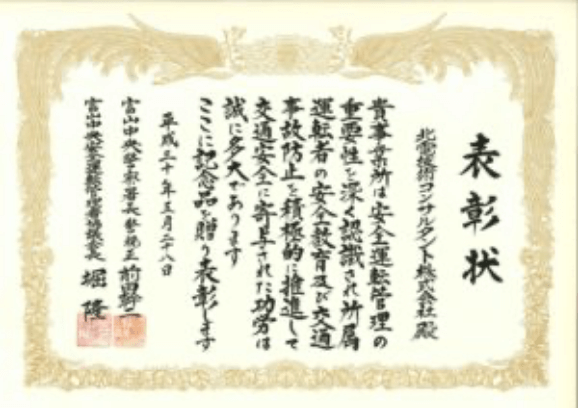 表彰状
北電技術コンサルタント株式会社 殿
貴事業所は安全運転管理の
重要性を深く認識され所属
運転者の安全教育及び交通
事故防止を積極的に推進して
交通安全に寄与された功労は
誠に多大であります
ここに記念品を贈り表彰します
平成三十年三月二十八日
富山中央警察署長 警視正 前田
富山中央安全運転管理者協議会長 堀 隆